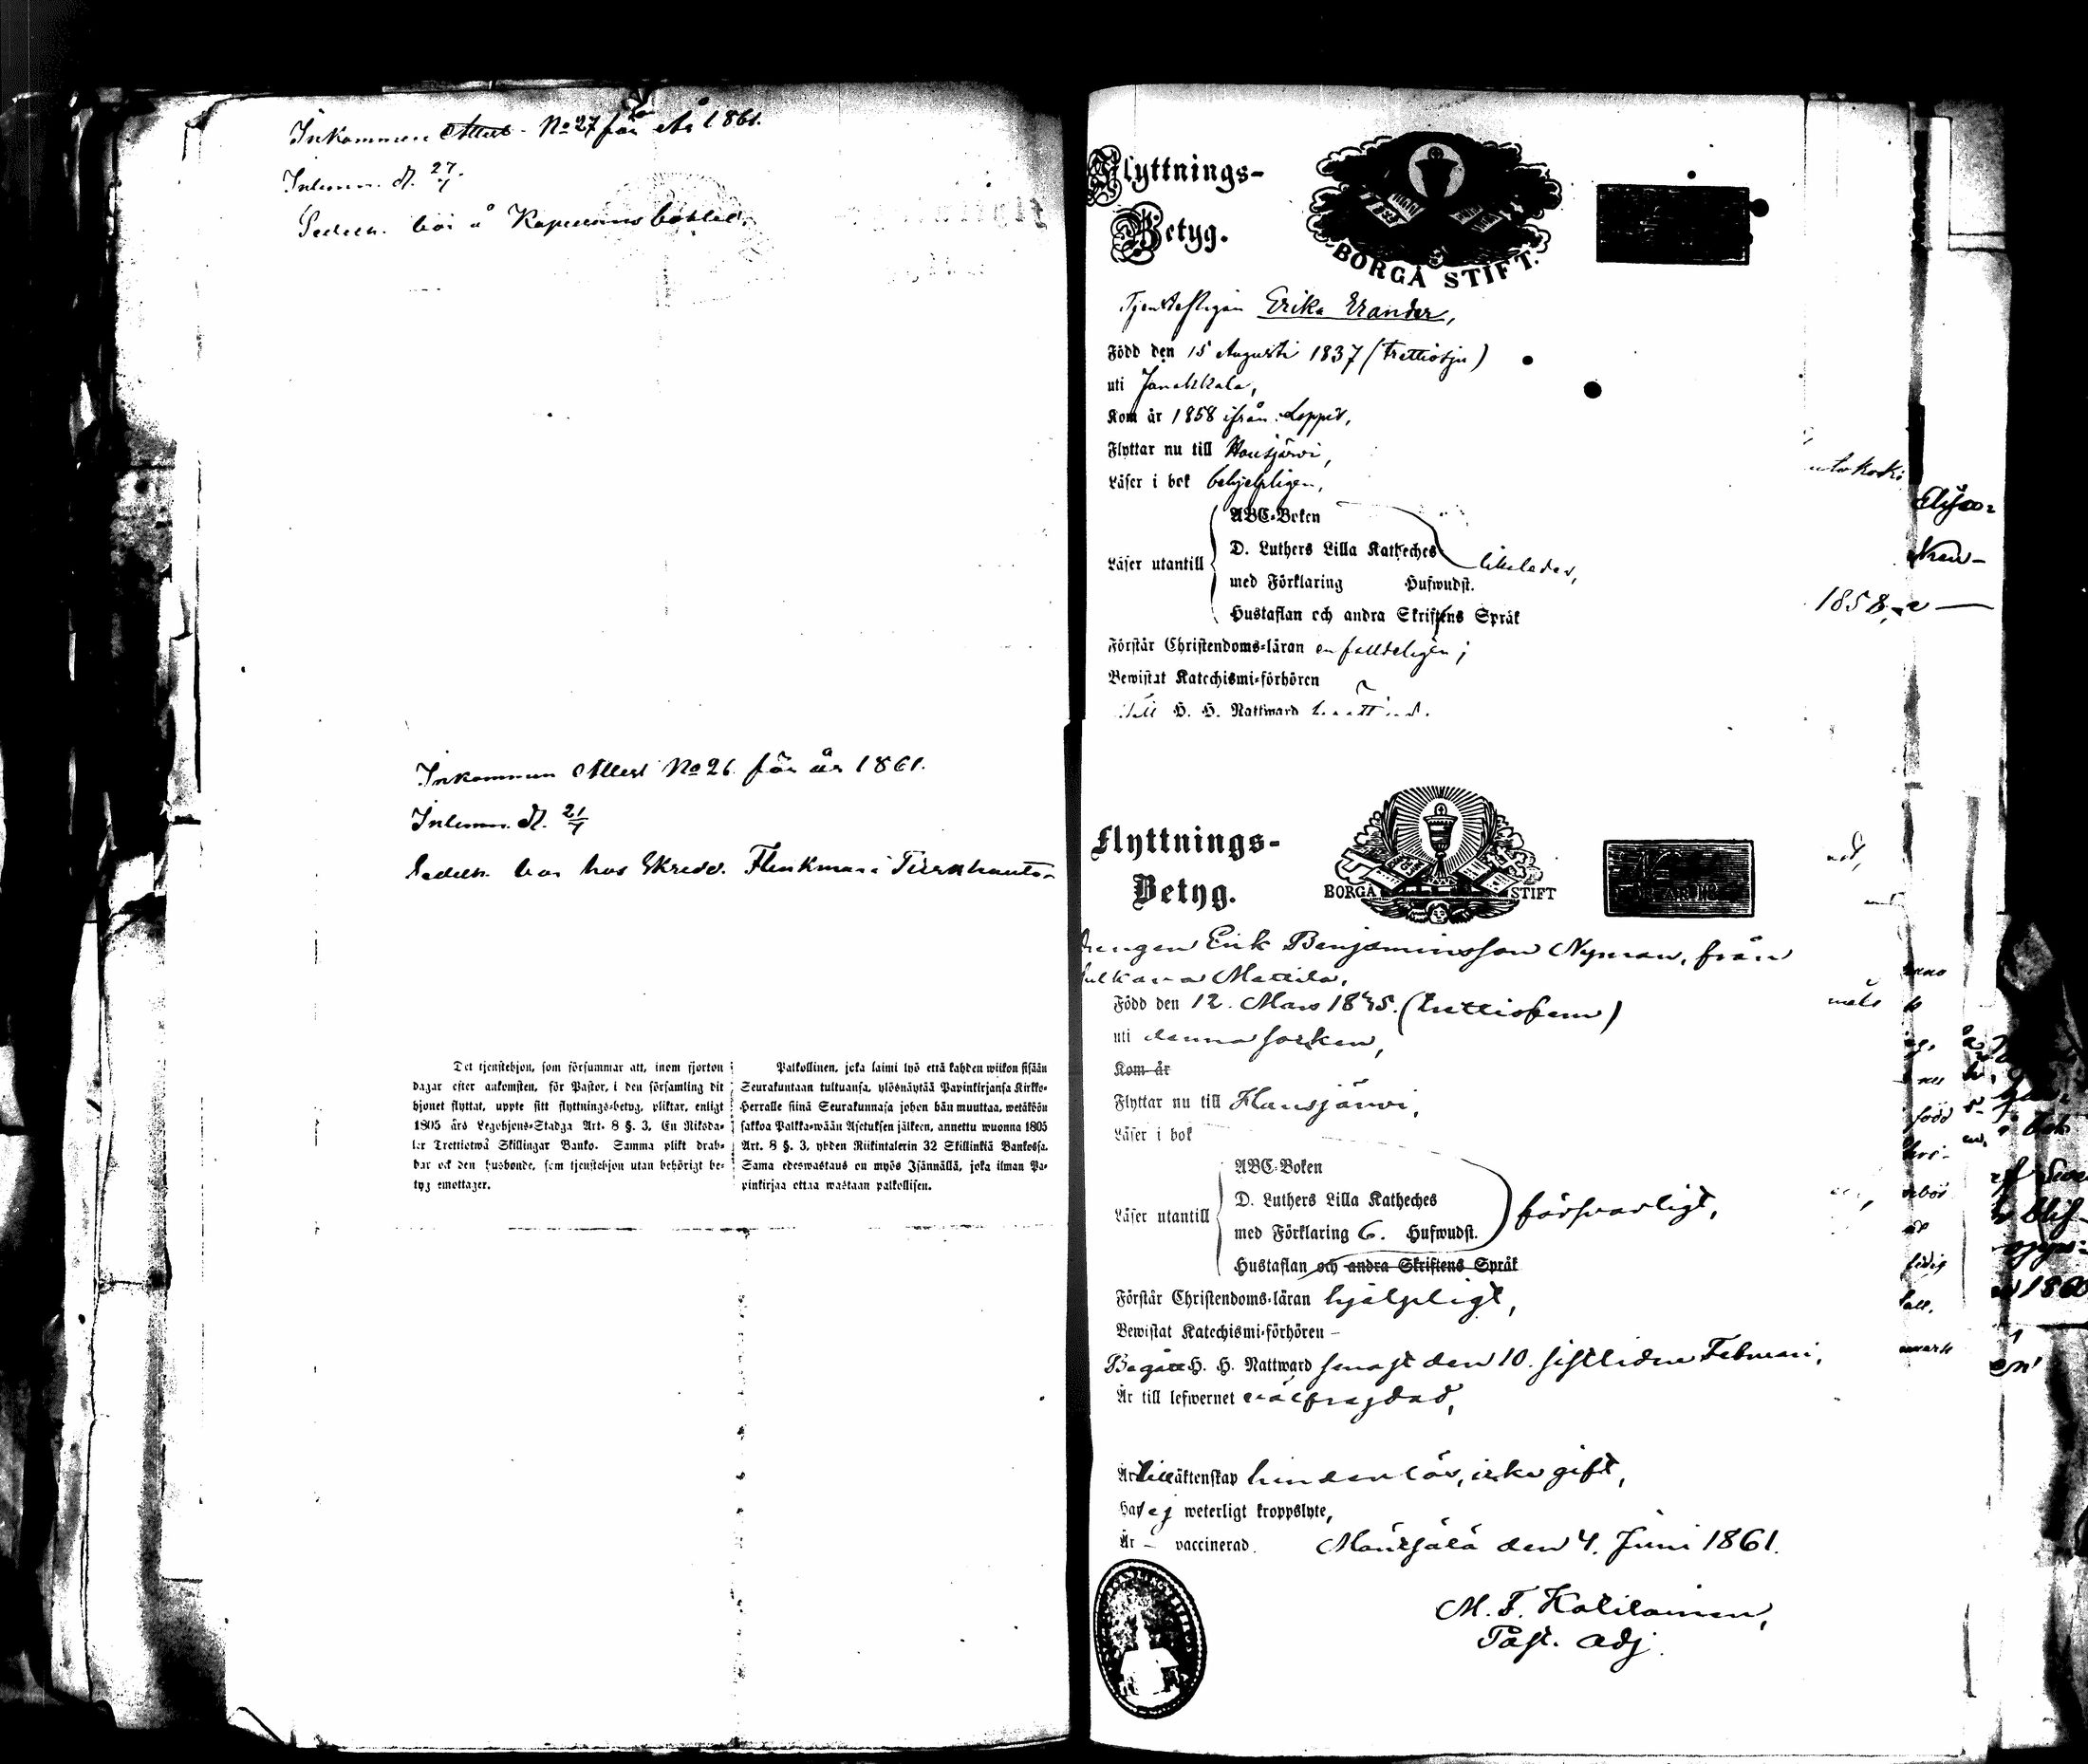 Inkommen Attest No 27 för år 1861.
Inlemn. d. 27/7.
Sedeln. bör å Kapellans bostad.
Inkommen Attest No 26 för år 1861.
Inlemn. d. 21/7
Sedeln. bor hos Skredd. Flinkman i
Det tjenstehjon, som försummar att, inom fjorton
dagar efter ankomsten, för Pastor, i den församling dit
hjonet flyttat, uppte sitt flyttnings-betyg, pliktar, enligt
1805 års Legohjons-Stadga Art. 8 §. 3. En Riksda-
ler Trettiotwå Skillingar Banko. Samma plikt drab-
bar ock den husbonde, som tjenstehjon utan behörigt be-
tyg emottager.
Palkollinen, joka laimi lyö että kahden wiikon sisään
Seurakuntaan tultuansa, ylösnäytää Papinkirjansa Kirkko-
Herralle siinä Seurakunnasa johon hän muuttaa, wetäköön
sakkoa Palkka-wään Asetuksen jälkeen, annettu wuonna 1805
Art. 8 §. 3, yhden Riikintalerin 32 Skillinkiä Bankossa.
Sama edeswastaus on myös Isännällä, joka ilman Pa-
pinkirjaa ottaa wastaan palkollisen.
Flyttnings-
Betyg.
BORGÅ STIFT.
Tjenstefligan Erika Erander,
Född den 15 Augusti 1837 (trettiosju)
uti Janakkala,
Kom år 1858 ifrån Loppis,
Flyttar nu till Hausjärvi,
Läser i bok behjelpligen,
ABC-Boken
D. Luthers Lilla Kateches
Läser utantill
likaledes,
med Förklaring Hufwudst.
Hustaflan och andra Skriftens Språk
Förstår Christendoms-läran enfaldeligen;
Bewistat Katechismi-förhören
till H. H. Nattward
1858,
Flyttnings-
Betyg.
BORGÅ STIFT
Drengen Erik Benjaminsson Nyman, från
Mattila,
Född den 12. Mars 1835. (trettiofem)
uti denna socken,
Kom år
Flyttar nu till Hausjärvi,
Läser i bok
ABC-Boken
D. Luthers Lilla Katheches
Läser utantill
försvarligt,
med Förklaring 6. Hufwudst.
Hustaflan och andra Skriftens Språk
Förstår Christendoms-läran hjälpligt,
Bewistat Katechismi-förhören –
Begått H. H. Nattward senast den 10. sistlidne Februari,
Är till lefwernet välfrejdad,
Är till äktenskap hinderlös, icke gift,
Har ej weterligt kroppslyte,
Är – vaccinerad. Mäntsälä den 4. Juni 1861.
M. F. Kolilainen,
Past. adj.